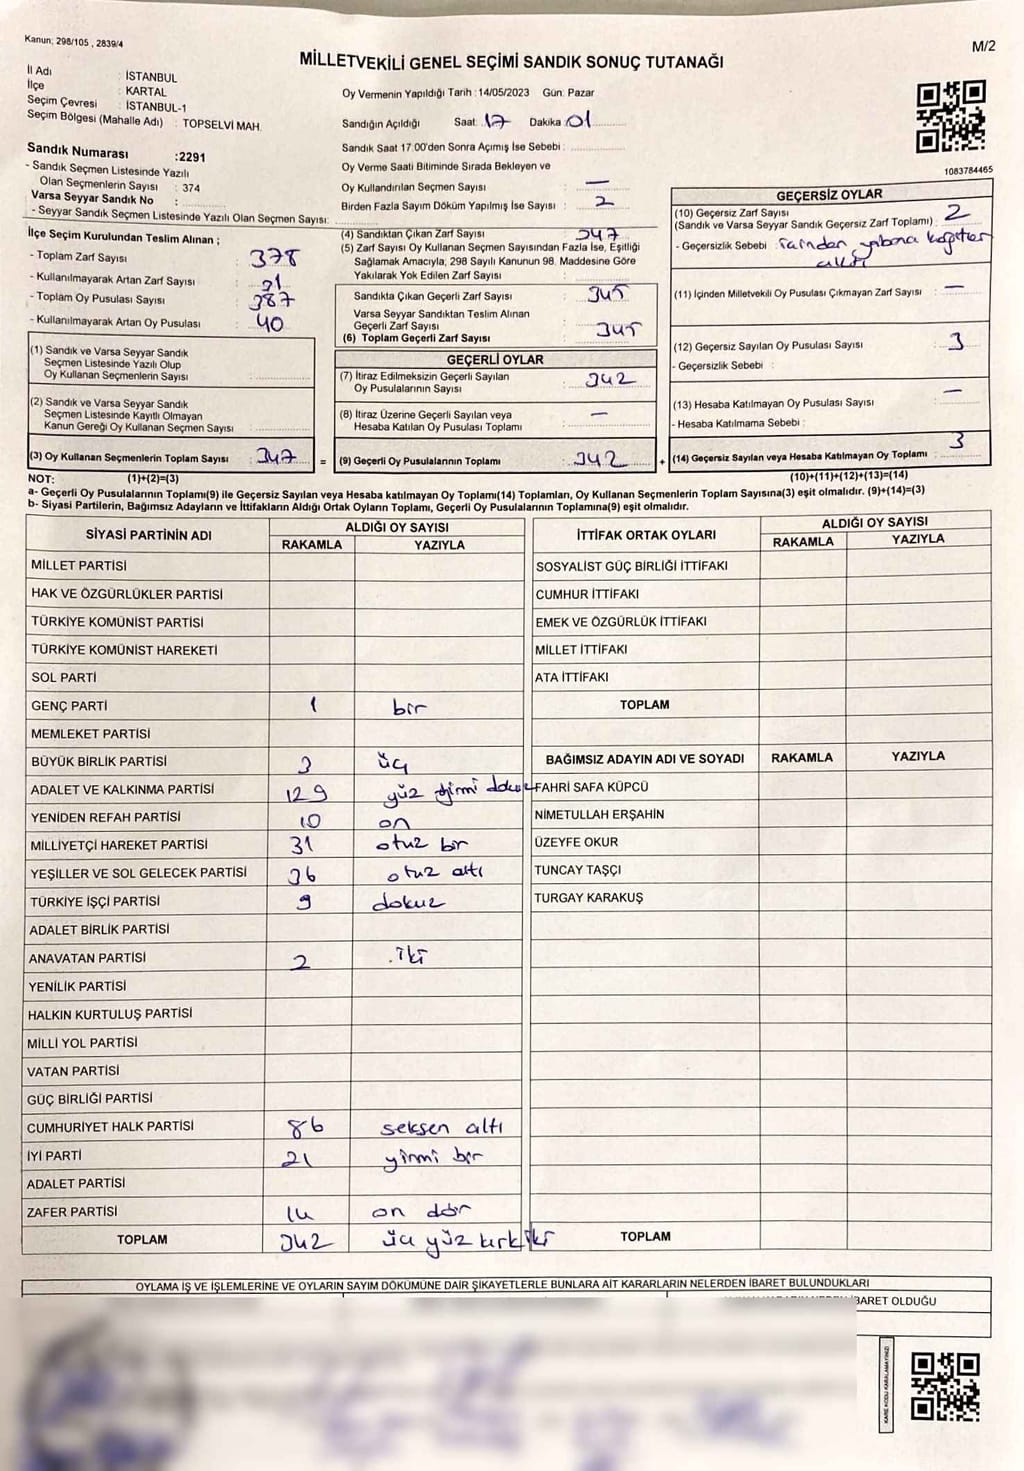 Kanun; 298/105 , 2839/4
M/2
MİLLETVEKİLİ GENEL SEÇİMİ SANDIK SONUÇ TUTANAĞI
İl Adı : İSTANBUL
İlçe : KARTAL
Seçim Çevresi : İSTANBUL-1
Seçim Bölgesi (Mahalle Adı) : TOPSELVİ MAH.
Oy Vermenin Yapıldığı Tarih : 14/05/2023 Gün: Pazar
Sandığın Açıldığı Saat: 17 Dakika 01
Sandık Saat 17:00'den Sonra Açımış İse Sebebi :
Oy Verme Saati Bitiminde Sırada Bekleyen ve
Oy Kullandırılan Seçmen Sayısı : —
Birden Fazla Sayım Döküm Yapılmış İse Sayısı : 2
1083784465
Sandık Numarası :2291
- Sandık Seçmen Listesinde Yazılı
Olan Seçmenlerin Sayısı : 374
Varsa Seyyar Sandık No :
- Seyyar Sandık Seçmen Listesinde Yazılı Olan Seçmen Sayısı:
İlçe Seçim Kurulundan Teslim Alınan ;
- Toplam Zarf Sayısı : 378
- Kullanılmayarak Artan Zarf Sayısı : 31
- Toplam Oy Pusulası Sayısı : 387
- Kullanılmayarak Artan Oy Pusulası : 40
(1) Sandık ve Varsa Seyyar Sandık
Seçmen Listesinde Yazılı Olup
Oy Kullanan Seçmenlerin Sayısı :
(2) Sandık ve Varsa Seyyar Sandık
Seçmen Listesinde Kayıtlı Olmayan
Kanun Gereği Oy Kullanan Seçmen Sayısı :
(3) Oy Kullanan Seçmenlerin Toplam Sayısı : 347 =
(4) Sandıktan Çıkan Zarf Sayısı : 347
(5) Zarf Sayısı Oy Kullanan Seçmen Sayısından Fazla İse, Eşitliği
Sağlamak Amacıyla; 298 Sayılı Kanunun 98. Maddesine Göre
Yakılarak Yok Edilen Zarf Sayısı :
Sandıkta Çıkan Geçerli Zarf Sayısı : 345
Varsa Seyyar Sandıktan Teslim Alınan
Geçerli Zarf Sayısı :
(6) Toplam Geçerli Zarf Sayısı : 345
GEÇERLİ OYLAR
(7) İtiraz Edilmeksizin Geçerli Sayılan
Oy Pusulalarının Sayısı : 342
(8) İtiraz Üzerine Geçerli Sayılan veya
Hesaba Katılan Oy Pusulası Toplamı : —
(9) Geçerli Oy Pusulalarının Toplamı : 342 +
GEÇERSİZ OYLAR
(10) Geçersiz Zarf Sayısı
(Sandık ve Varsa Seyyar Sandık Geçersiz Zarf Toplamı) : 2
- Geçersizlik Sebebi : içinden yabancı kağıtlar
çıktı
(11) İçinden Milletvekili Oy Pusulası Çıkmayan Zarf Sayısı : —
(12) Geçersiz Sayılan Oy Pusulası Sayısı : 3
- Geçersizlik Sebebi :
(13) Hesaba Katılmayan Oy Pusulası Sayısı : —
- Hesaba Katılmama Sebebi :
(14) Geçersiz Sayılan veya Hesaba Katılmayan Oy Toplamı : 3
NOT: (1)+(2)=(3) (10)+(11)+(12)+(13)=(14)
a- Geçerli Oy Pusulasının Toplamı(9) ile Geçersiz Sayılan veya Hesaba katılmayan Oy Toplamı(14) Toplamları, Oy Kullanan Seçmenlerin Toplam Sayısına(3) eşit olmalıdır. (9)+(14)=(3)
b- Siyasi Partilerin, Bağımsız Adayların ve İttifakların Aldığı Ortak Oyların Toplamı, Geçerli Oy Pusulalarının Toplamına(9) eşit olmalıdır.
SİYASİ PARTİNİN ADI ALDIĞI OY SAYISI
RAKAMLA YAZIYLA
MİLLET PARTİSİ
HAK VE ÖZGÜRLÜKLER PARTİSİ
TÜRKİYE KOMÜNİST PARTİSİ
TÜRKİYE KOMÜNİST HAREKETİ
SOL PARTİ
GENÇ PARTİ 1 bir
MEMLEKET PARTİSİ
BÜYÜK BİRLİK PARTİSİ 3 üç
ADALET VE KALKINMA PARTİSİ 129 yüz yirmi dokuz
YENİDEN REFAH PARTİSİ 10 on
MİLLİYETÇİ HAREKET PARTİSİ 31 otuz bir
YEŞİLLER VE SOL GELECEK PARTİSİ 36 otuz altı
TÜRKİYE İŞÇİ PARTİSİ 9 dokuz
ADALET BİRLİK PARTİSİ
ANAVATAN PARTİSİ 2 iki
YENİLİK PARTİSİ
HALKIN KURTULUŞ PARTİSİ
MİLLİ YOL PARTİSİ
VATAN PARTİSİ
GÜÇ BİRLİĞİ PARTİSİ
CUMHURİYET HALK PARTİSİ 86 seksen altı
İYİ PARTİ 21 yirmi bir
ADALET PARTİSİ
ZAFER PARTİSİ 14 on dör
TOPLAM 342 üç yüz kırk iki
İTTİFAK ORTAK OYLARI ALDIĞI OY SAYISI
RAKAMLA YAZIYLA
SOSYALİST GÜÇ BİRLİĞİ İTTİFAKI
CUMHUR İTTİFAKI
EMEK VE ÖZGÜRLÜK İTTİFAKI
MİLLET İTTİFAKI
ATA İTTİFAKI
TOPLAM
BAĞIMSIZ ADAYIN ADI VE SOYADI RAKAMLA YAZIYLA
FAHRİ SAFA KÜPCÜ
NİMETULLAH ERŞAHİN
ÜZEYFE OKUR
TUNCAY TAŞÇI
TURGAY KARAKUŞ
TOPLAM
OYLAMA İŞ VE İŞLEMLERİNE VE OYLARIN SAYIM DÖKÜMÜNE DAİR ŞİKAYETLERLE BUNLARA AİT KARARLARIN NELERDEN İBARET BULUNDUKLARI
BARET OLDUĞU
KARE KODU KARALAMAYINIZ